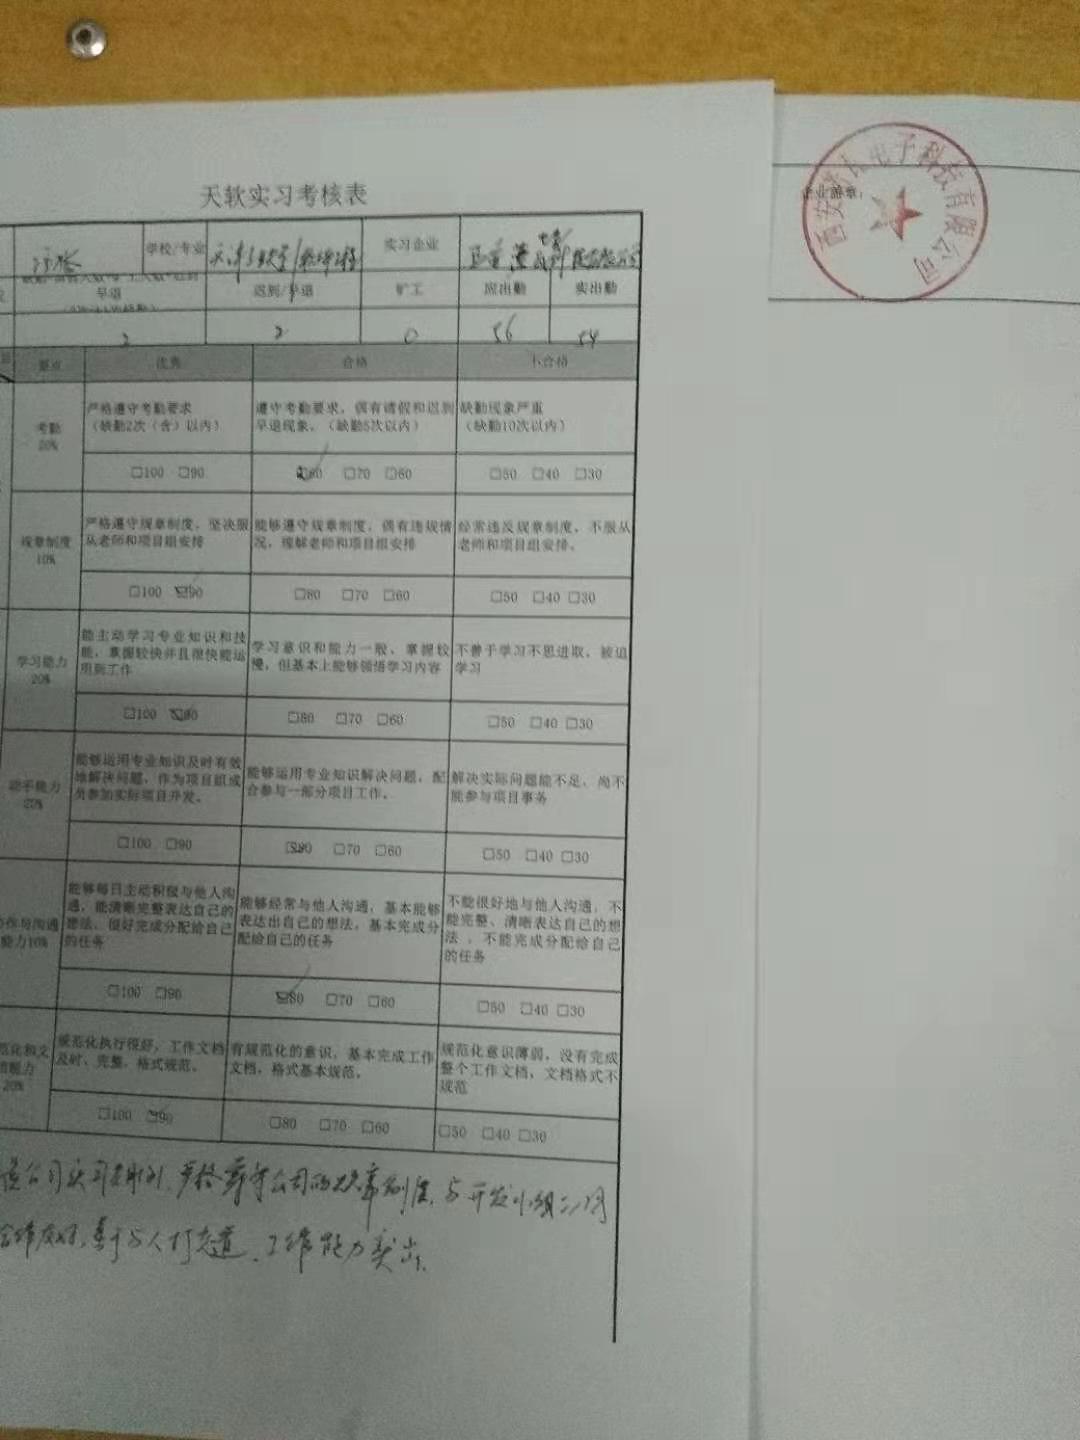 天软实习考核表
学校/专业 实习企业
早退 迟到/早退 旷工 应出勤 实出勤
2 2 0 56 54
要点 优秀 合格 不合格
考勤
20%
严格遵守考勤要求
(缺勤2次(含)以内)
遵守考勤要求,偶有请假和迟到
早退现象。(缺勤5次以内)
缺勤现象严重
(缺勤10次以内)
□100 □90 □80 □70 □60 □50 □40 □30
规章制度
10%
严格遵守规章制度,坚决服
从老师和项目组安排
能够遵守规章制度,偶有违规情
况,理解老师和项目组安排
经常违反规章制度,不服从
老师和项目组安排。
□100 ☑90 □80 □70 □60 □50 □40 □30
学习能力
20%
能主动学习专业知识和技
能,掌握较快并且很快能运
用到工作
学习意识和能力一般、掌握较
慢,但基本上能够领悟学习内容
不善于学习不思进取、被迫
学习
□100 ☑90 □80 □70 □60 □50 □40 □30
动手能力
20%
能够运用专业知识及时有效
地解决问题,作为项目组成
员参加实际项目开发。
能够运用专业知识解决问题,配
合参与一部分项目工作。
解决实际问题能不足、尚不
能参与项目事务
□100 □90 ☑80 □70 □60 □50 □40 □30
作与沟通
能力10%
能够每日主动积极与他人沟
通,能清晰完整表达自己的
想法、很好完成分配给自己
的任务
能够经常与他人沟通,基本能够
表达出自己的想法,基本完成分
配给自己的任务
不能很好地与他人沟通,不
能完整、清晰表达自己的想
法,不能完成分配给自己
的任务
□100 □90 ☑80 □70 □60 □50 □40 □30
范化和文
能力
20%
规范化执行很好,工作文档
及时、完整,格式规范。
有规范化的意识,基本完成工作
文档,格式基本规范。
规范化意识薄弱,没有完成
整个工作文档,文档格式不
规范
□100 ☑90 □80 □70 □60 □50 □40 □30
公司实习期间,严格遵守公司的规章制度,与开发小组
合作友好,善于与人打交道,工作能力突出。
电子科技有限公司